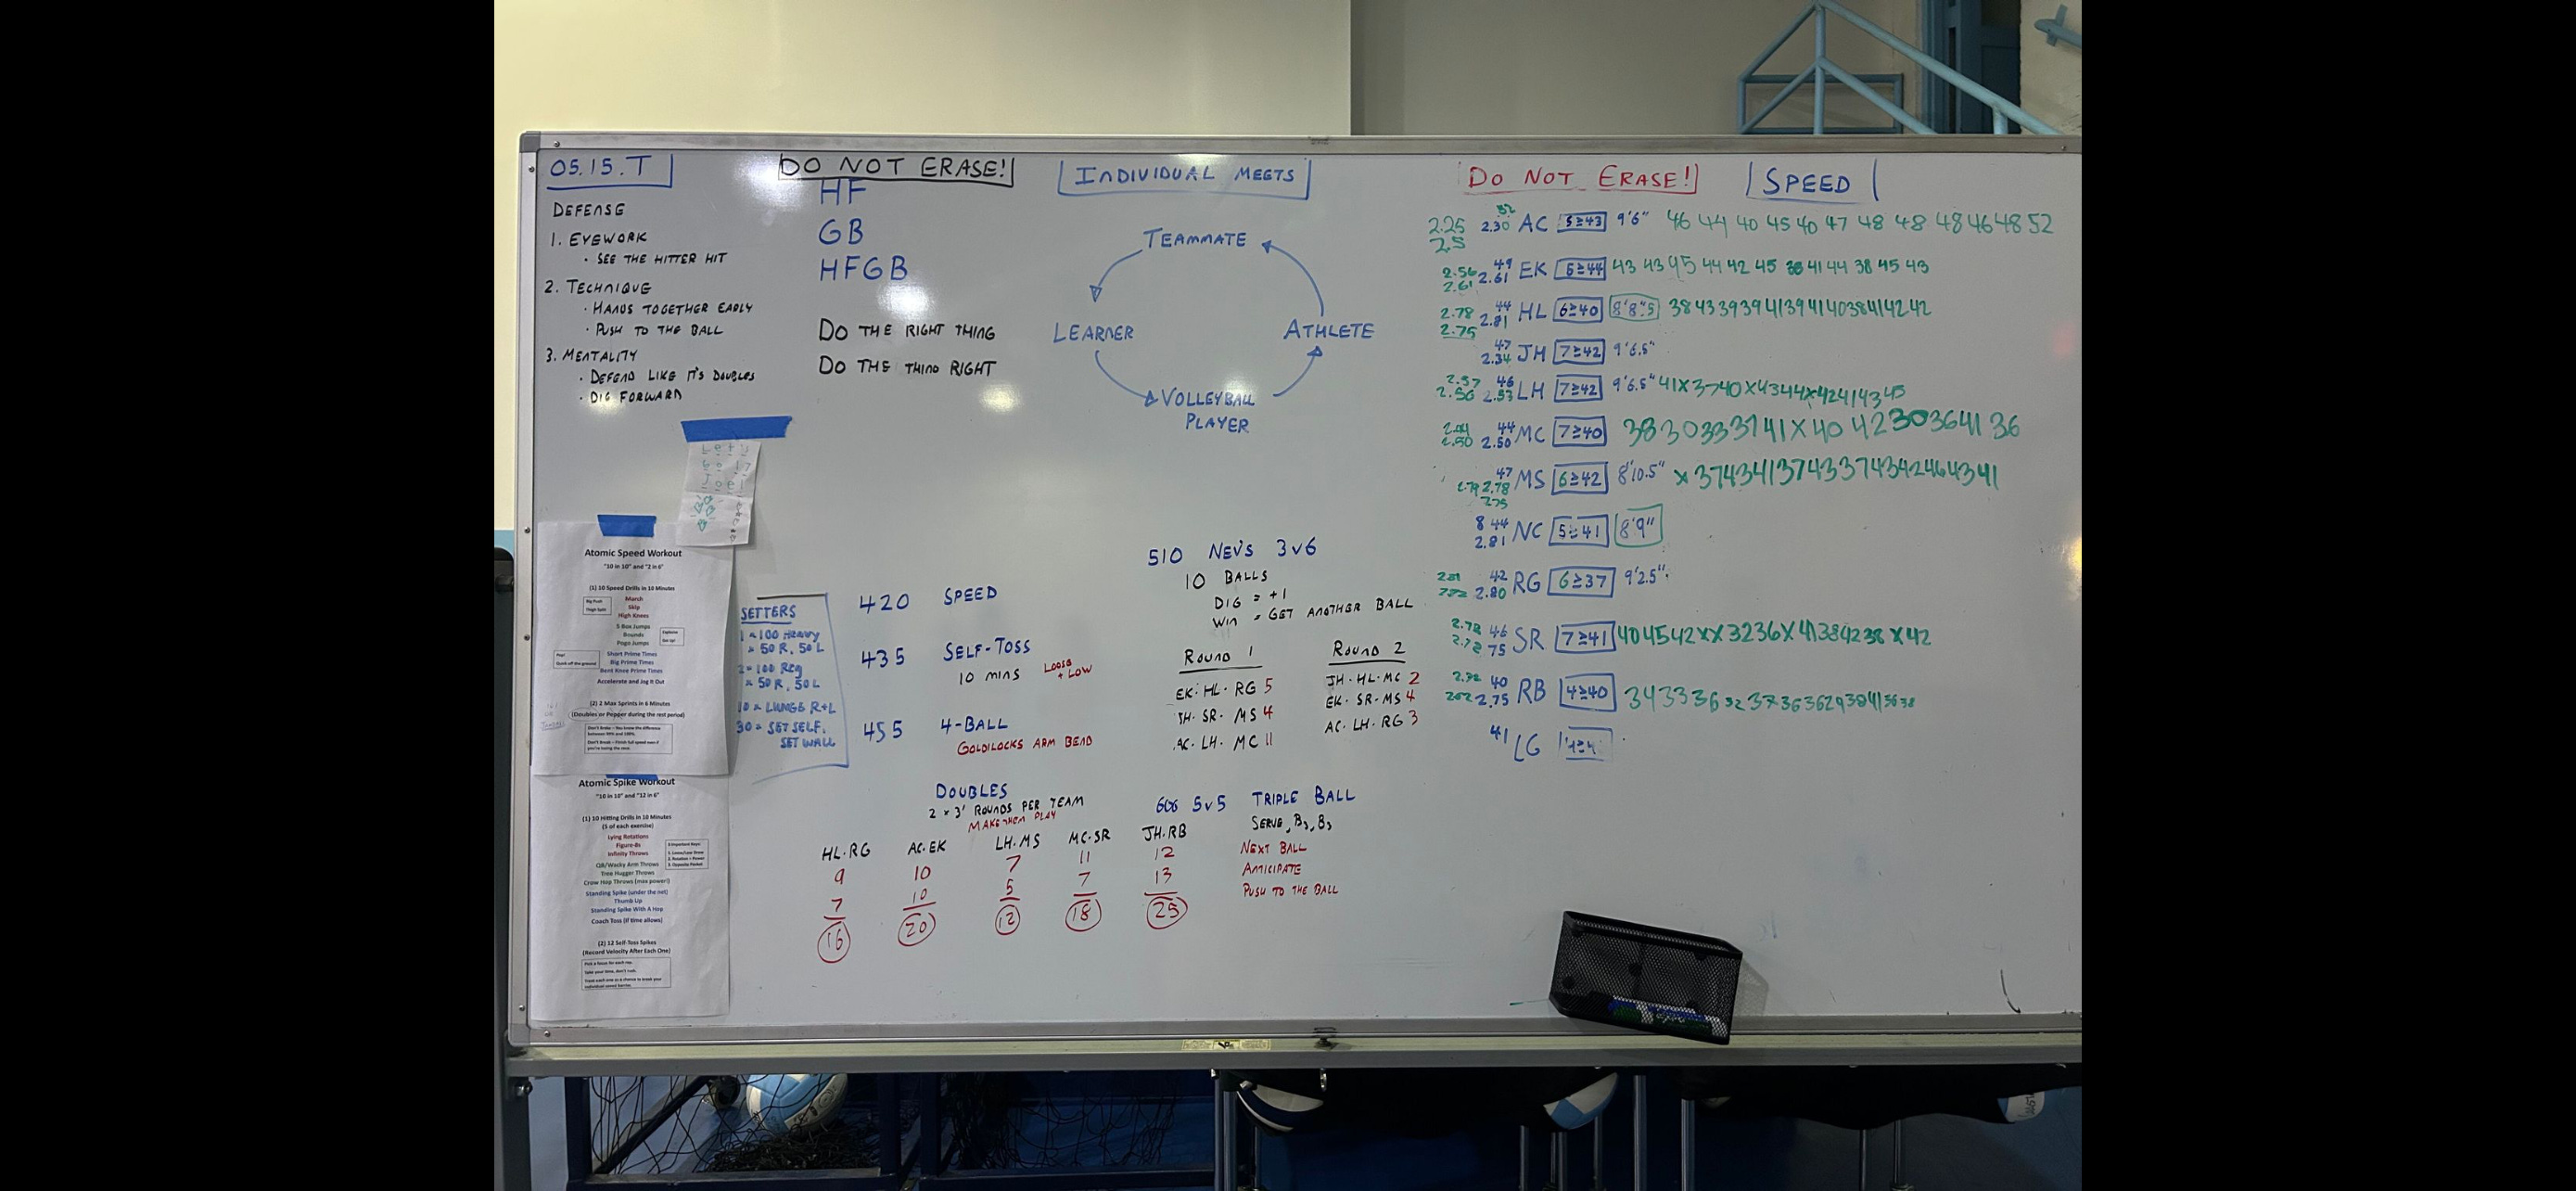 05.15.T
DEFENSE
1. EYEWORK
· SEE THE HITTER HIT
2. TECHNIQUE
· HANDS TOGETHER EARLY
· PUSH TO THE BALL
3. MENTALITY
· DEFEND LIKE IT'S DOUBLES
· DIG FORWARD
DO NOT ERASE!
HF
GB
HFGB
DO THE RIGHT THING
DO THE THING RIGHT
INDIVIDUAL MEETS
TEAMMATE
LEARNER
ATHLETE
VOLLEYBALL
PLAYER
Atomic Speed Workout
"10 in 10" and "2 in 6"
(1) 10 Speed Drills in 10 Minutes
March
Skip
High Knees
5-Box Jumps
Bounds
Pogo Jumps
Short Prime Times
Big Prime Times
Bent Knee Prime Times
Accelerate and Jog It Out
(2) 2 Max Sprints in 6 Minutes
(Doubles or Pepper during the rest period)
Atomic Spike Workout
"10 in 10" and "12 in 6"
(1) 10 Hitting Drills in 10 Minutes
(5 of each exercise)
Lying Rotations
Figure-8s
Infinity Throws
QB/Wacky Arm Throws
Tree Hugger Throws
Crow Hop Throws (max power!)
Standing Spike (under the net)
Thumb Up
Standing Spike With A Hop
Coach Toss (if time allows)
(2) 12 Self-Toss Spikes
(Record Velocity After Each One)
SETTERS
1 = 100 HEAVY
= 50 R, 50 L
2 = 100 REG
= 50 R, 50 L
10 = LUNGE R+L
30 = SET SELF,
SET WALL
420 SPEED
435 SELF-TOSS
10 MINS LOOSE + LOW
455 4-BALL
GOLDILOCKS ARM BEND
510 NEV'S 3v6
10 BALLS
DIG = +1
WIN = GET ANOTHER BALL
ROUND 1
EK· HL· RG 5
JH· SR· MS 4
AC· LH· MC 11
ROUND 2
JH· HL· MC 2
EK· SR· MS 4
AC· LH· RG 3
DOUBLES
2 × 3' ROUNDS PER TEAM
MAKE THEM PLAY
HL·RG AC·EK LH·MS MC·SR JH·RB
9 10 7 11 12
7 10 5 7 13
16 20 12 18 25
5v5 TRIPLE BALL
SERVE, B3, B3
NEXT BALL
ANTICIPATE
PUSH TO THE BALL
DO NOT ERASE!
SPEED
2.25 2.5 52 2.30 AC 5≥43 9'6" 46 44 40 45 40 47 48 48 48 46 48 52
2.56 2.61 49 2.61 EK 6≥44 43 43 45 44 42 45 38 41 44 38 45 43
2.78 2.75 44 2.81 HL 6≥40 8'8".5 38 43 39 39 41 39 41 40 38 41 42 42
47 2.34 JH 7≥42 9'6.5"
2.57 2.56 46 2.53 LH 7≥42 9'6.5" 41 X 37 40 X 43 44 X 42 41 43 45
2.50 44 2.50 MC 7≥40 38 30 33 37 41 X 40 42 30 36 41 36
2.79 2.75 47 2.78 MS 6≥42 8'10.5" X 37 43 41 37 43 37 43 42 46 43 41
8 44 2.81 NC 5≥41 8'9"
42 2.80 RG 6≥37 9'2.5"
2.78 2.72 46 75 SR 7≥41 40 45 42 X X 32 36 X 41 38 42 38 X 42
40 2.75 RB 4≥40 34 33 36 32 37 36 36 29 38 41 36 38
41 LG